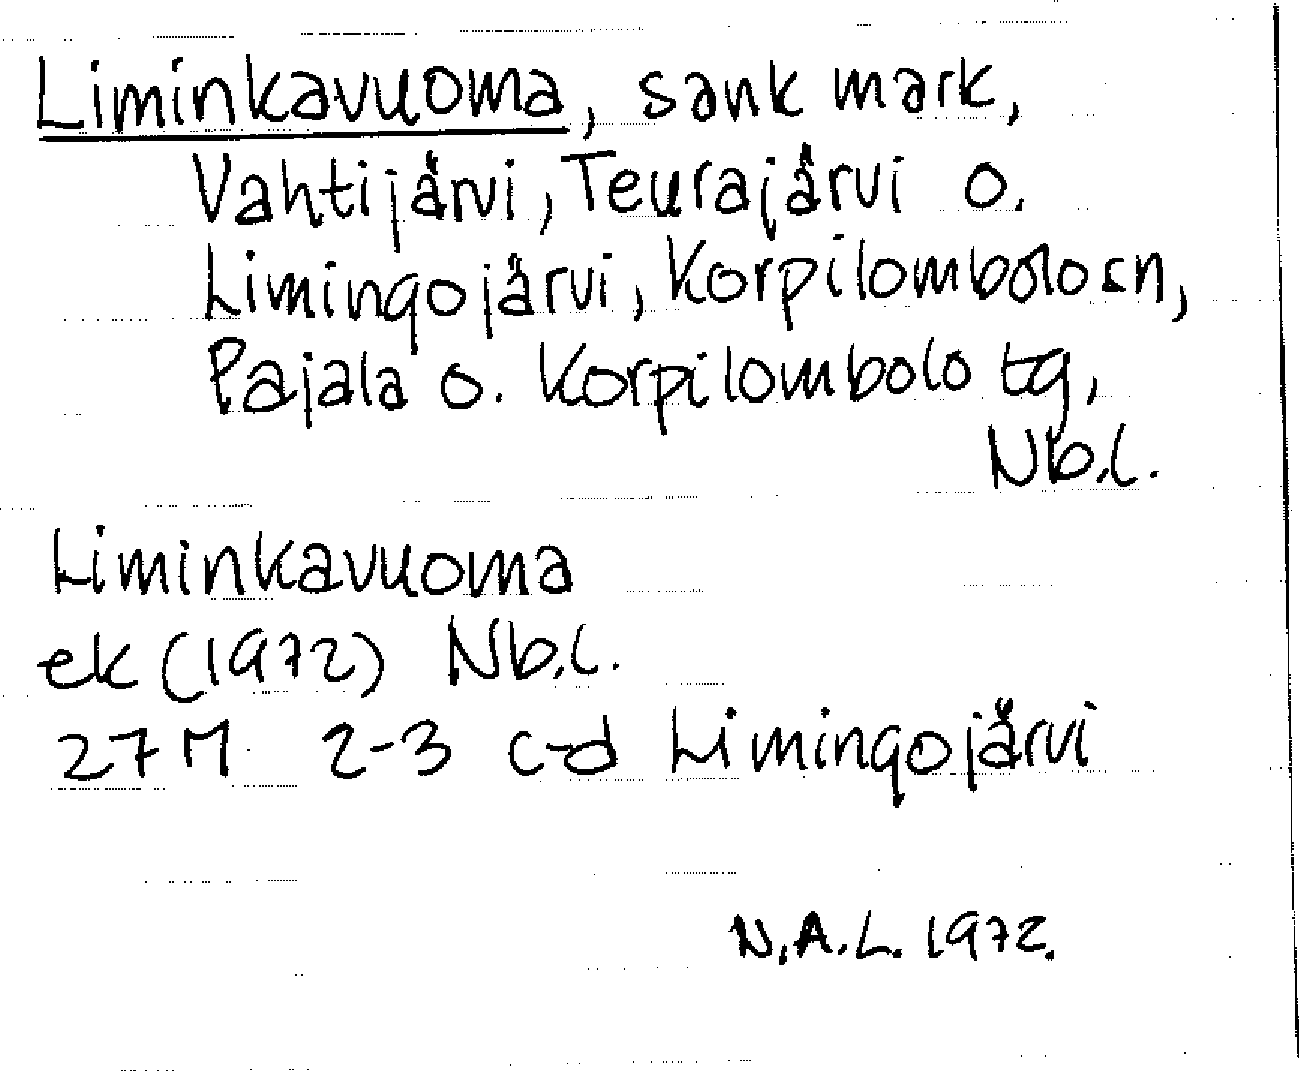 Liminkavuoma, sank mark,
Vahtijärvi, Teurajärvi o.
Limingojärvi, Korpilombolo sn,
Pajala o. Korpilombolo tg,
Nb.l.
Liminkavuoma
ek (1972) Nb.l.
27 M 2-3 c-d Limingojärvi
N.A.L. 1972.